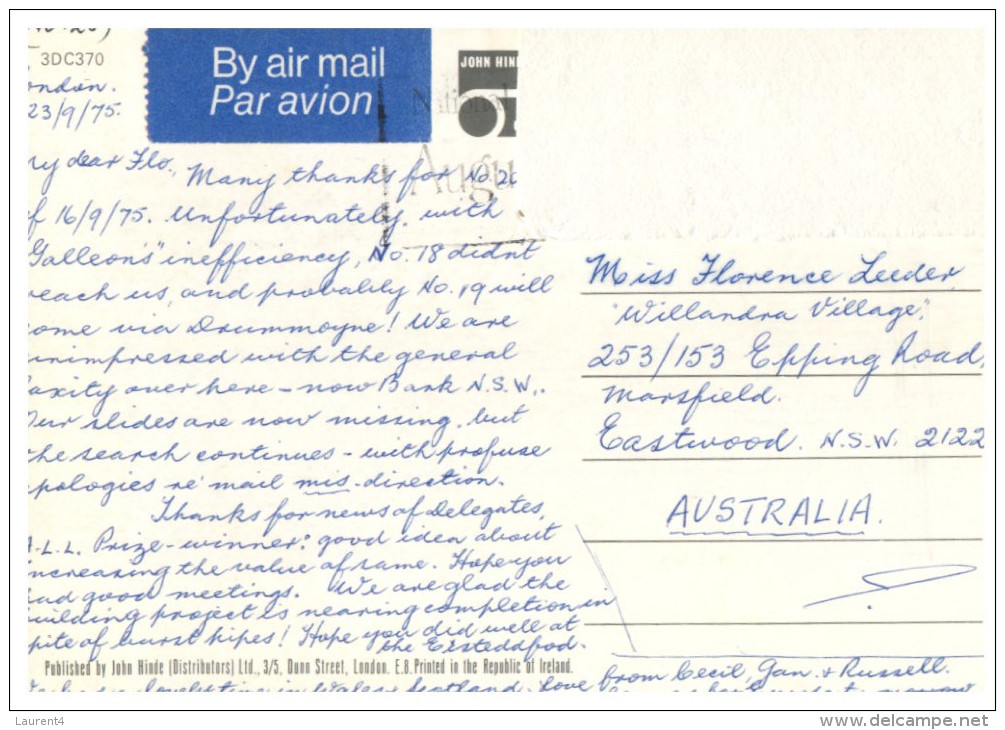 3DC370
By air mail
Par avion
JOHN HIND
National
Augu
London.
23/9/75.
my dear Flo.,
Many thanks for No. 20
of 16/9/75. Unfortunately, with
Galleons" inefficiency, No. 18 didn't
reach us, and probably No. 19 will
come via Drummoyne! We are
unimpressed with the general
laxity over here - now Bank N.S.W..
Our slides are now missing, but
the search continues - with profuse
apologies re' mail mis-direction.
Thanks for news of delegates,
A.L.L. Prize-winner: good idea about
increasing the value of same. Hope you
had good meetings. We are glad the
building project is nearing completion in
spite of burst pipes! Hope you did well at
the Eisteddfod.
Published by John Hinde (Distributors) Ltd., 3/5, Dunn Street, London. E.8. Printed in the Republic of Ireland.
in Wales & Scotland. Love from Cecil, Gan & Russell.
Miss Florence Leeder,
"Willandra Village",
253/153 Epping Road,
Marsfield.
Eastwood. N.S.W. 2122
AUSTRALIA.
Laurent4
www.delcampe.net